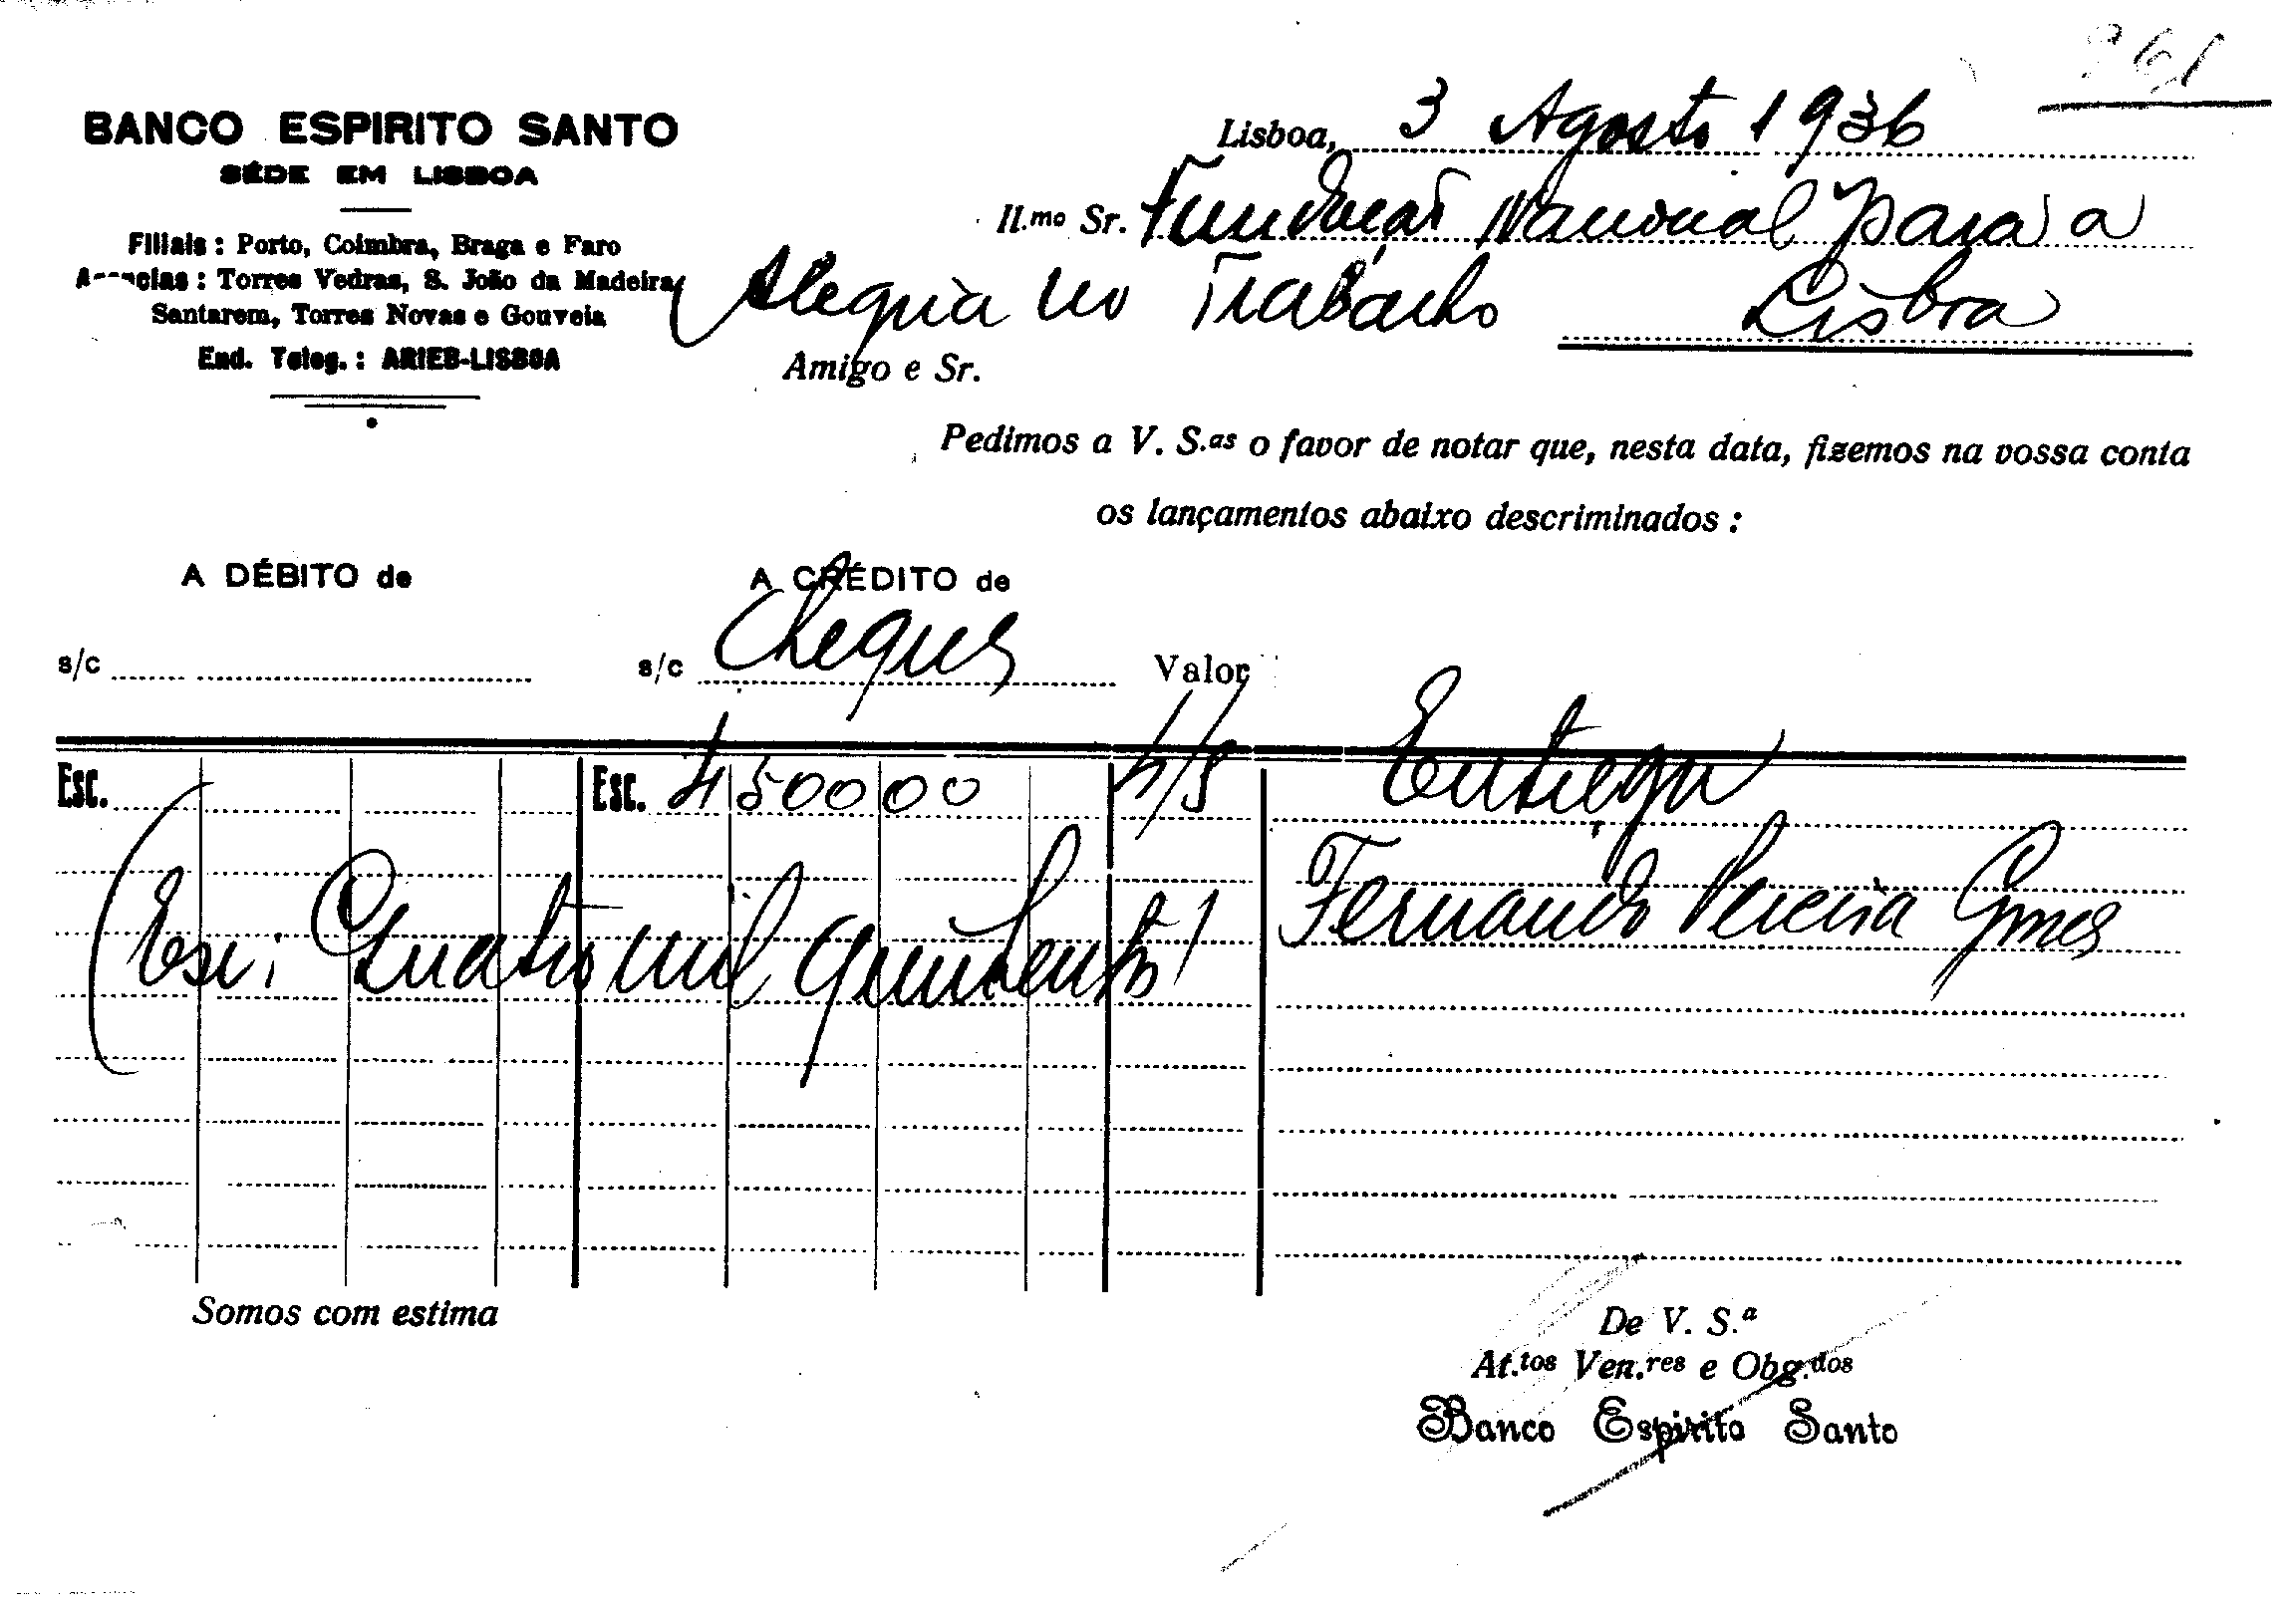 961
BANCO ESPIRITO SANTO
SÉDE EM LISBOA
Filiais : Porto, Coimbra, Braga e Faro
Agencias : Torres Vedras, S. João da Madeira,
Santarem, Torres Novas e Gouveia
End. Teleg. : ARIEB-LISBOA
Lisboa, 3 Agosto 1936
Il.mo Sr. Fundação Nacional para a
Alegria no Trabalho Lisboa
Amigo e Sr.
Pedimos a V. S.as o favor de notar que, nesta data, fizemos na vossa conta
os lançamentos abaixo descriminados :
A DÉBITO de A CRÉDITO de
s/c s/c Cheques Valor
Esc. Esc. 4 500 00 4/8 Entrega
Fernando Pereira Gomes
(Esc: Quatro mil quinhentos)
Somos com estima
De V. S.ª
At.tos Ven.res e Obg.dos
Banco Espirito Santo